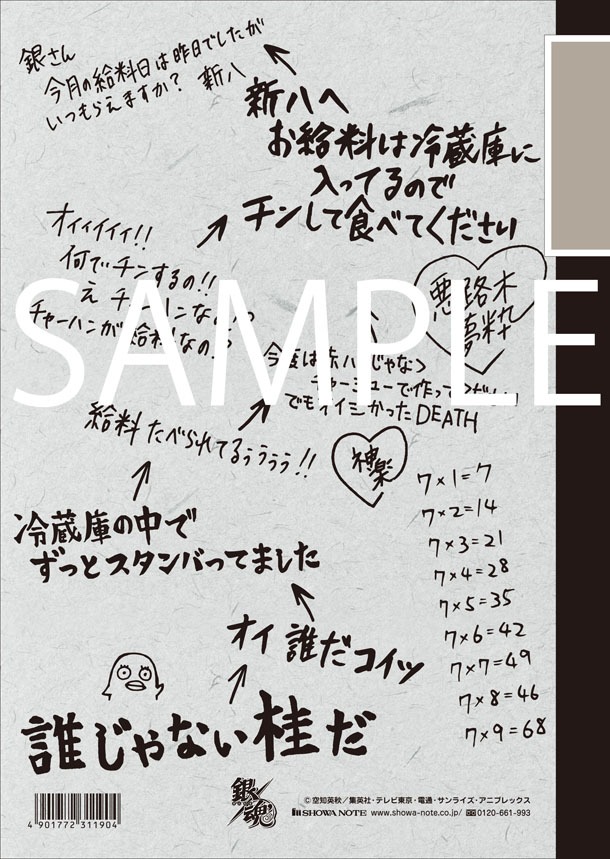 銀さん
今月の給料日は昨日でしたが
いつもらえますか? 新八
新八へ
お給料は冷蔵庫に
入ってるので
チンして食べてください
オイィイイイ!!
何でチンするの!!
え チャーハンなの!?
チャーハンが給料なの!?
悪路木
夢粋
SAMPLE
今度は赤ハムじゃなく
チャーシューで作ってください
でもオイシかったDEATH
神楽
給料たべられてるぅぅぅぅ!!
冷蔵庫の中で
ずっとスタンバってました
オイ 誰だコイツ
誰じゃない桂だ
7×1=7
7×2=14
7×3=21
7×4=28
7×5=35
7×6=42
7×7=49
7×8=46
7×9=68
4 901772 311904
銀魂
©空知英秋/集英社・テレビ東京・電通・サンライズ・アニプレックス
SHOWA NOTE www.showa-note.co.jp/ 0120-661-993